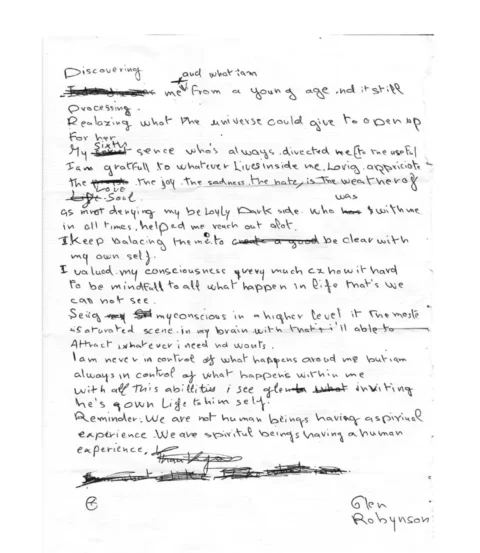 Discovering and what i am
me from a young age and it still
processing.
Realazing what the universe could give to open up
For her
My Sixty sence who's always divected me (to the useful
I am gratfull to whatever Lives inside me, Lovig, appriciate
the Love the joy. the sadness. the hate, is the weather of
Soul.
as mnot denying my beloyly Dark side who was with me
in all times, helped me reach out alot.
I keep balacing them to be clear with
my own self.
I valued my consciousness very much how it hard
to be mindfull to all what happen in life that's we
can not see.
Seing my conscious in a higher level it The moste
saturated scene in my brain with that's i'll able to
Attract whatever i need no wants.
I am never in control of what happens aroud me but i am
always in control of what happens within me
with all this abillities i see glen inviting
he's own Life to him self.
Reminder. We are not human beings having a spirival
experience. We are spiritul beings having a human
experience.
Glen
Robynson